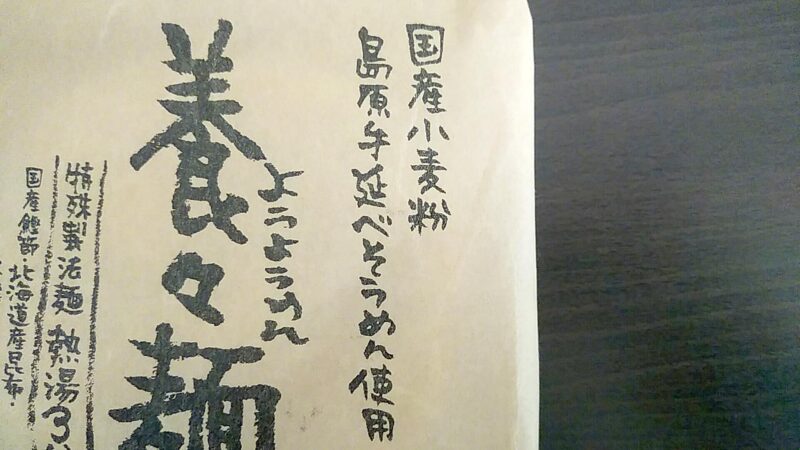 国産小麦粉
島原手延べそうめん使用
ようようめん
養々麺
特殊製法麺 熱湯3分
国産鰹節・北海道産昆布・